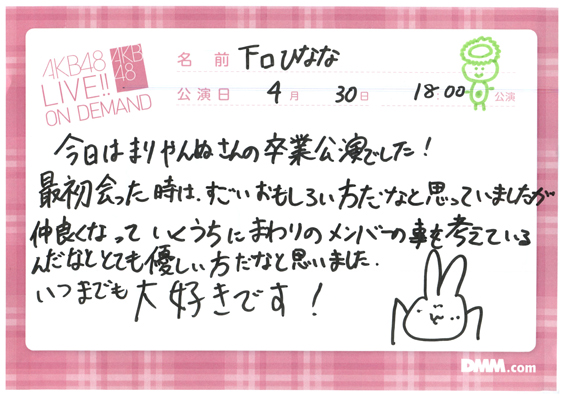 AKB48
LIVE!!
ON DEMAND
AKB
48
名 前 下口ひなな
公演日 4月 30日 18:00 公演
今日はまりやんぬさんの卒業公演でした!
最初会った時は、すごいおもしろい方だなと思っていましたが
仲良くなっていくうちにまわりのメンバーの事を考えている
んだなととても優しい方だなと思いました.
いつまでも大好きです!
DMM.com